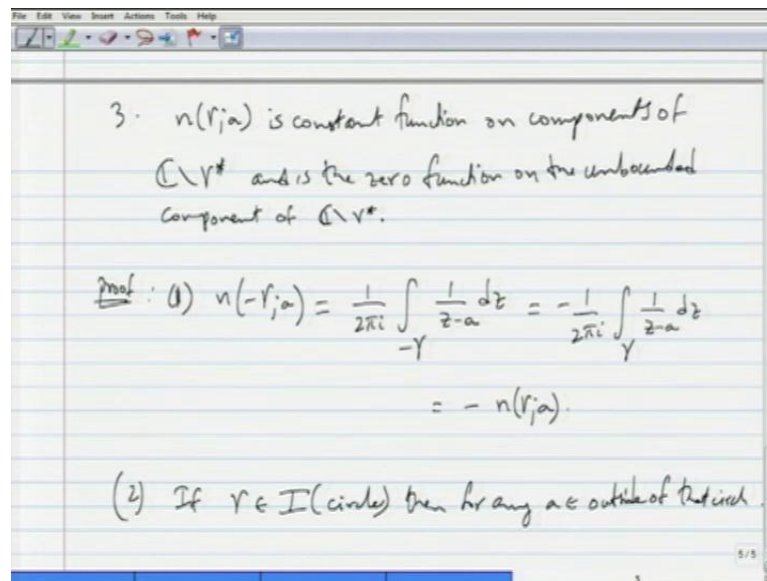 File Edit View Insert Actions Tools Help
3. n(γ;a) is constant function on components of
ℂ\γ* and is the zero function on the unbounded
component of ℂ\γ*.
Proof: (1) n(-γ;a) = 1/2πi ∫_{-γ} 1/z-a dz = -1/2πi ∫_γ 1/z-a dz
= - n(γ;a).
(2) If γ ∈ I(circle) then for any a ∈ outside of that circle.
5/5